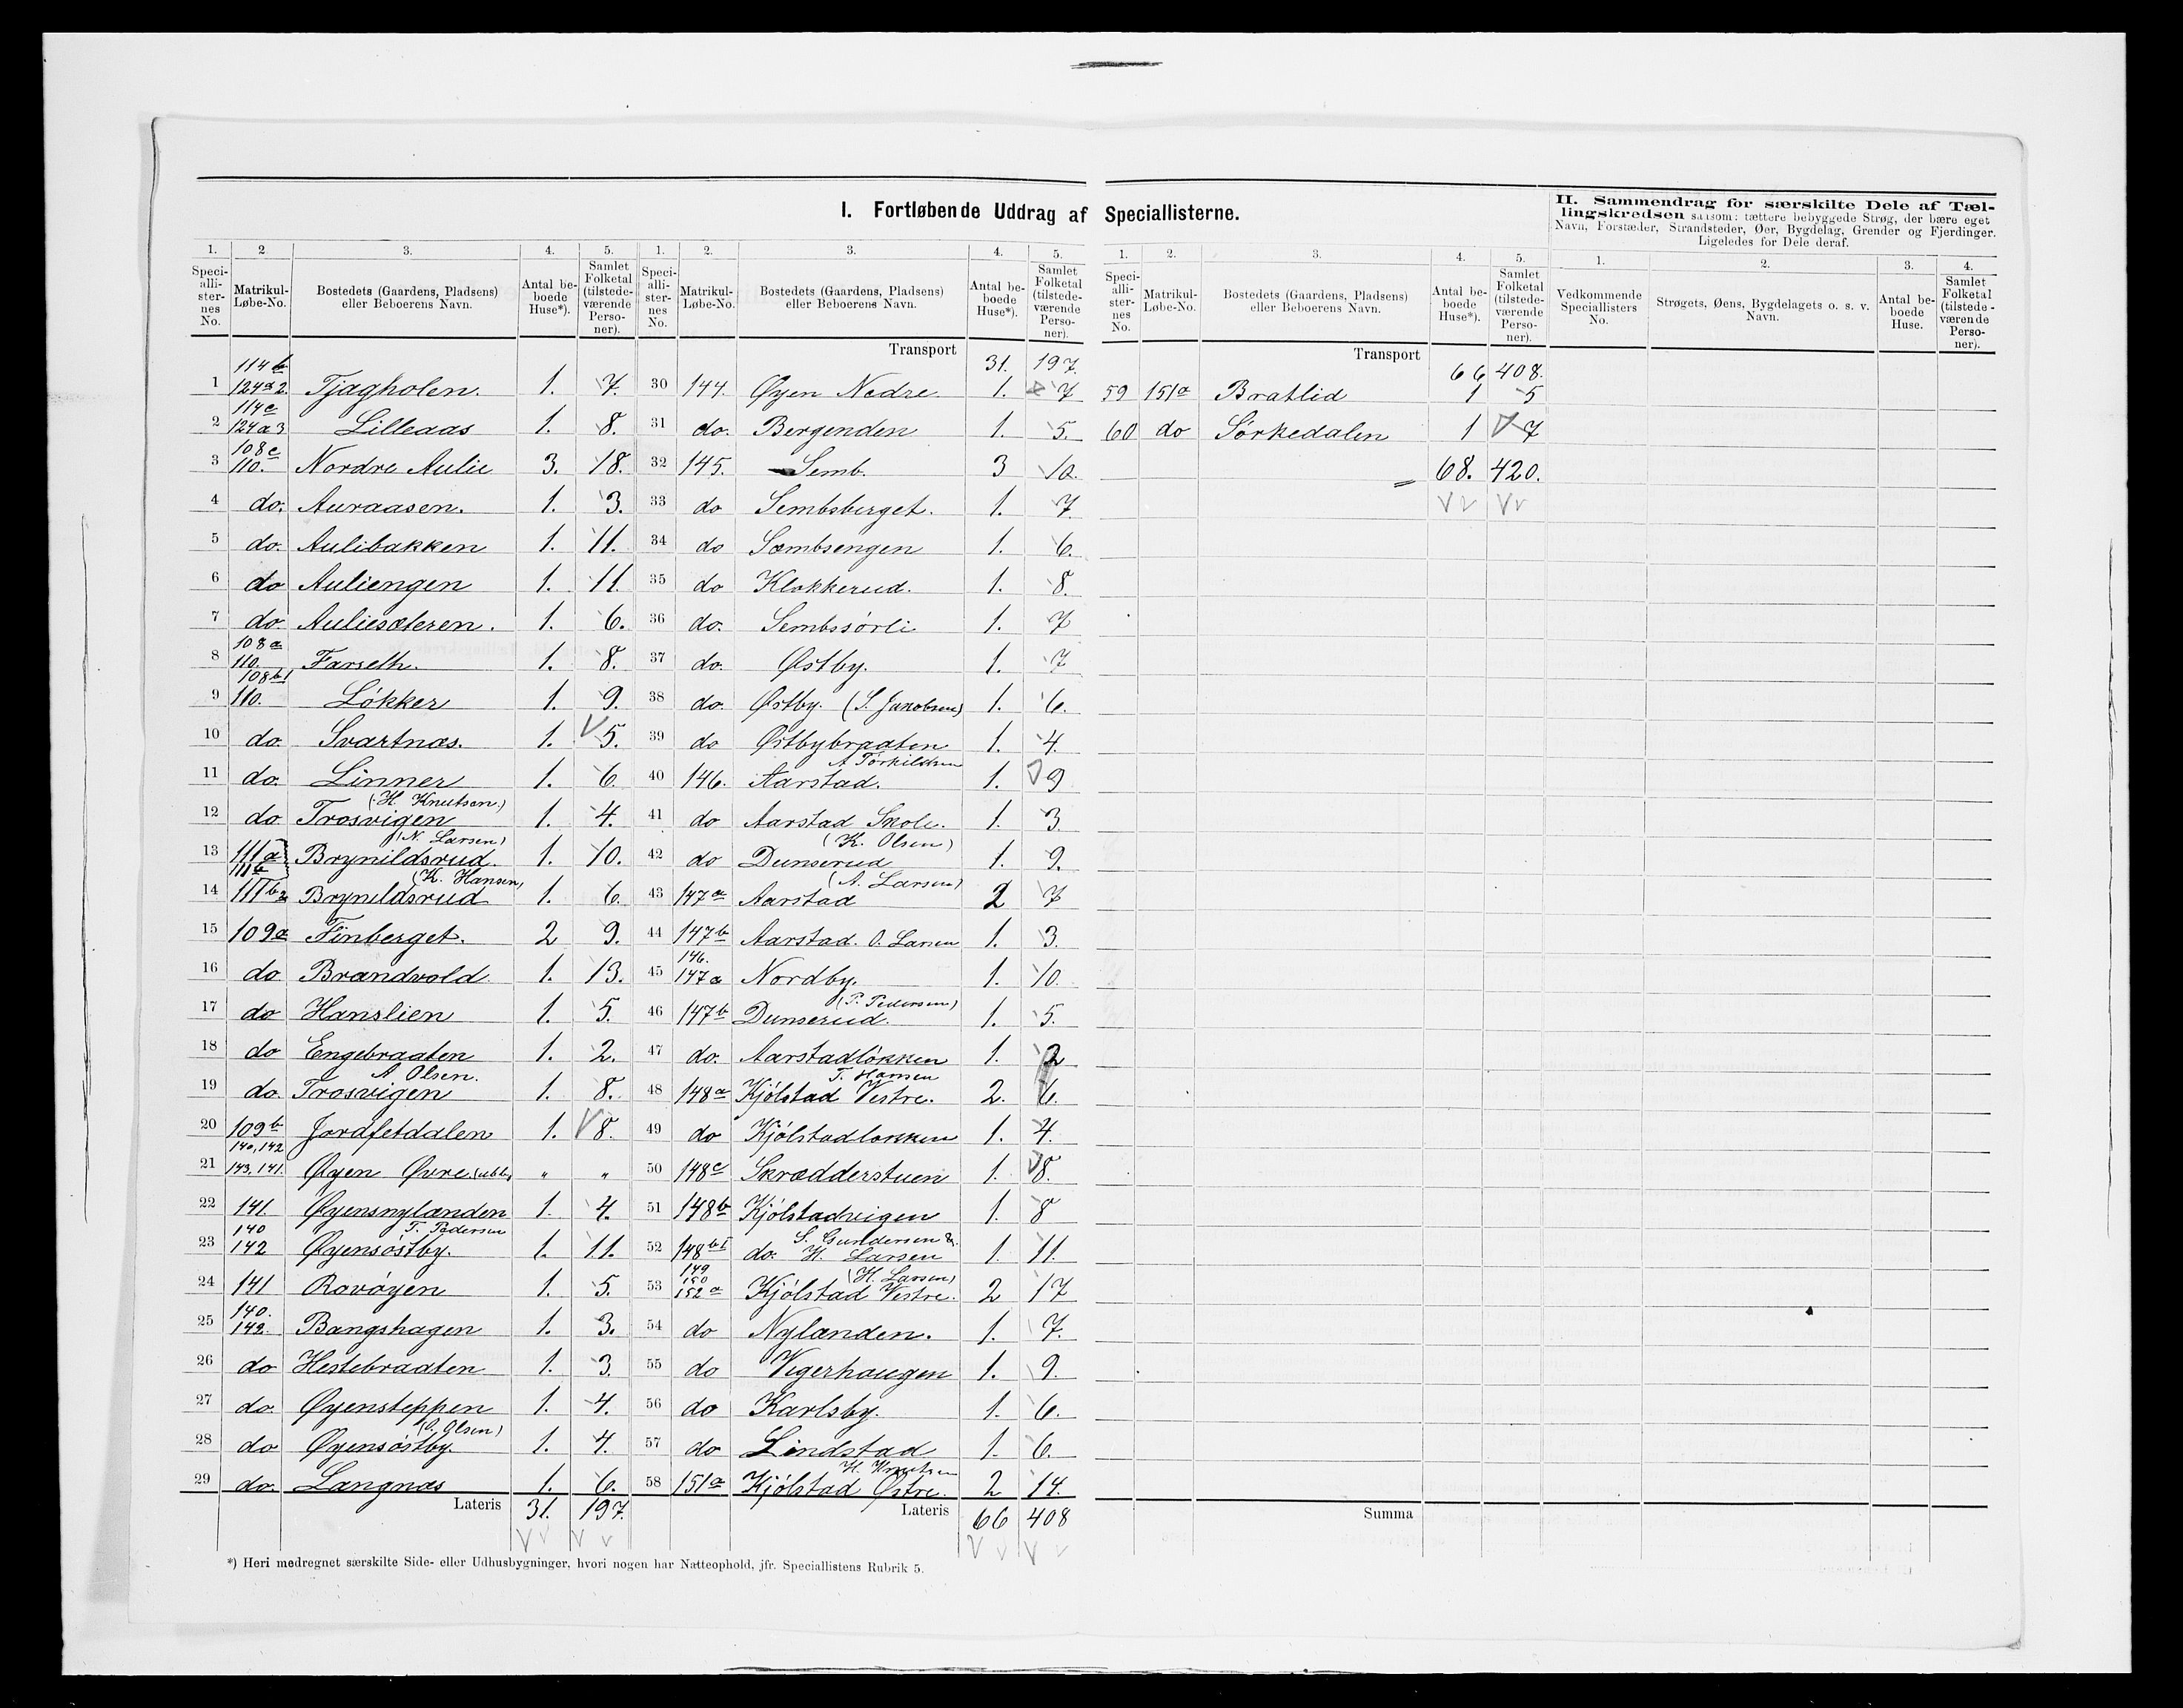 I. Fortløbende Uddrag af Speciallisterne.
II. Sammendrag for særskilte Dele af Tæl-
lingskredsen saasom: tættere bebyggede Strøg, der bære eget
Navn, Forstæder, Strandsteder, Øer, Bygdelag, Grender og Fjerdinger.
Ligeledes for Dele deraf.
1. 2. 3. 4. 5. 1. 2. 3. 4. 5. 1. 2. 3. 4. 5. 1. 2. 3. 4.
Speci-alli-ster-nes No. Matrikul-Løbe-No. Bostedets (Gaardens, Pladsens) eller Beboerens Navn. Antal be-boede Huse*). Samlet Folketal (tilstede-værende Perso-ner).
Speci-alli-ster-nes No. Matrikul-Løbe-No. Bostedets (Gaardens, Pladsens) eller Beboerens Navn. Antal be-boede Huse*). Samlet Folketal (tilstede-værende Perso-ner).
Speci-alli-ster-nes No. Matrikul-Løbe-No. Bostedets (Gaardens, Pladsens) eller Beboerens Navn. Antal be-boede Huse*). Samlet Folketal (tilstede-værende Perso-ner).
Vedkommende Speciallisters No. Strøgets, Øens, Bygdelagets o. s. v. Navn. Antal be-boede Huse. Samlet Folketal (tilstede-værende Perso-ner).
1 114b 124a2. Tjagholen. 1. 7.
2 114c 124a3 Lilleaas 1. 8.
3 108c 110. Nordre Aulie 3. 18.
4 do. Auraasen. 1. 3.
5 do. Aulibakken 1. 11.
6 do Auliengen 1. 11.
7 do. Auliesæteren. 1. 6.
8 108a 110. Farseth. 1. 8.
9 108b1 110. Løkker 1. 9.
10 do. Svartnæs. 1. 5.
11 do. Linner 1. 6.
12 do Trosvigen (H. Knutsen.) 1. 4.
13 111a 111b Brynildsrud. (N. Larsen) 1. 10.
14 111b2 Brynildsrud (K. Hansen) 1. 6.
15 109a Finberget. 2 9.
16 do Brandvold. 1. 13.
17 do Hanslien 1. 5.
18 do Engebraaten 1. 2.
19 do. Trosvigen A Olsen. 1. 8.
20 109b Jordfetdalen 1. 8.
21 140, 142 143, 141. Øyen Øvre (ubb) " "
22 141. Øyensnylænden 1. 4.
23 140 142 Øyensøstby. T. Pedersen 1. 11.
24 141 Rovøyen 1. 5.
25 140. 142. Bangshagen 1. 3.
26 do Hestebraaten 1. 3.
27 do. Øyensteppen 1. 4.
28 do Øyensøstby. (O. Olsen) 1. 4.
29 do. Langnæs 1. 6.
Lateris 31. 197.
Transport 31. 197.
30 144. Øyen Nedre. 1. 7
31 do. Bergenden 1. 5.
32 145. Semb. 3 10.
33 do Sembsberget. 1. 7.
34 do Sæmbsengen 1. 6.
35 do Klokkerud. 1. 8.
36 do. Sembssørli 1. 7
37 do. Østby. 1. 7
38 do. Østby. (S. Jacobsen) 1. 6.
39 do Østbybraaten 1. 4.
40 146. Aarstad. A Törkildsen 1. 9
41 do Aarstad Skole. 1. 3.
42 do Dunserud (K. Olsen) 1. 9.
43 147a Aarstad (A. Larsen) 2 7
44 147b Aarstad. O. Larsen 1. 3.
45 146. 147a Nordby. 1. 10.
46 147b Dunserud. (P. Pedersen) 1. 5.
47 do. Aarstadløkken 1. 2
48 148a Kjølstad Vestre. T. Hansen 2. 6.
49 do Kjølstadløkken 1. 4.
50 148c Skrædderstuen 1. 8.
51 148b Kjølstadvigen 1. 8
52 148b1 do. S. Gundersen & H. Larsen 1. 11.
53 149 150 152a Kjølstad Vestre. (H. Larsen) 2 17
54 do Nylænden. 1. 7.
55 do Vigerhaugen 1. 9.
56 do Karlsby. 1. 6.
57 do Lindstad 1. 6.
58 151a Kjølstad Østre. H. Knutsen 2 14.
Lateris 66 408
Transport 66 408.
59 151a Bratlid 1 5
60 do Sørkedalen 1 7
68. 420.
Summa
*) Heri medregnet særskilte Side- eller Udhusbygninger, hvori nogen har Natteophold, jfr. Speciallistens Rubrik 5.